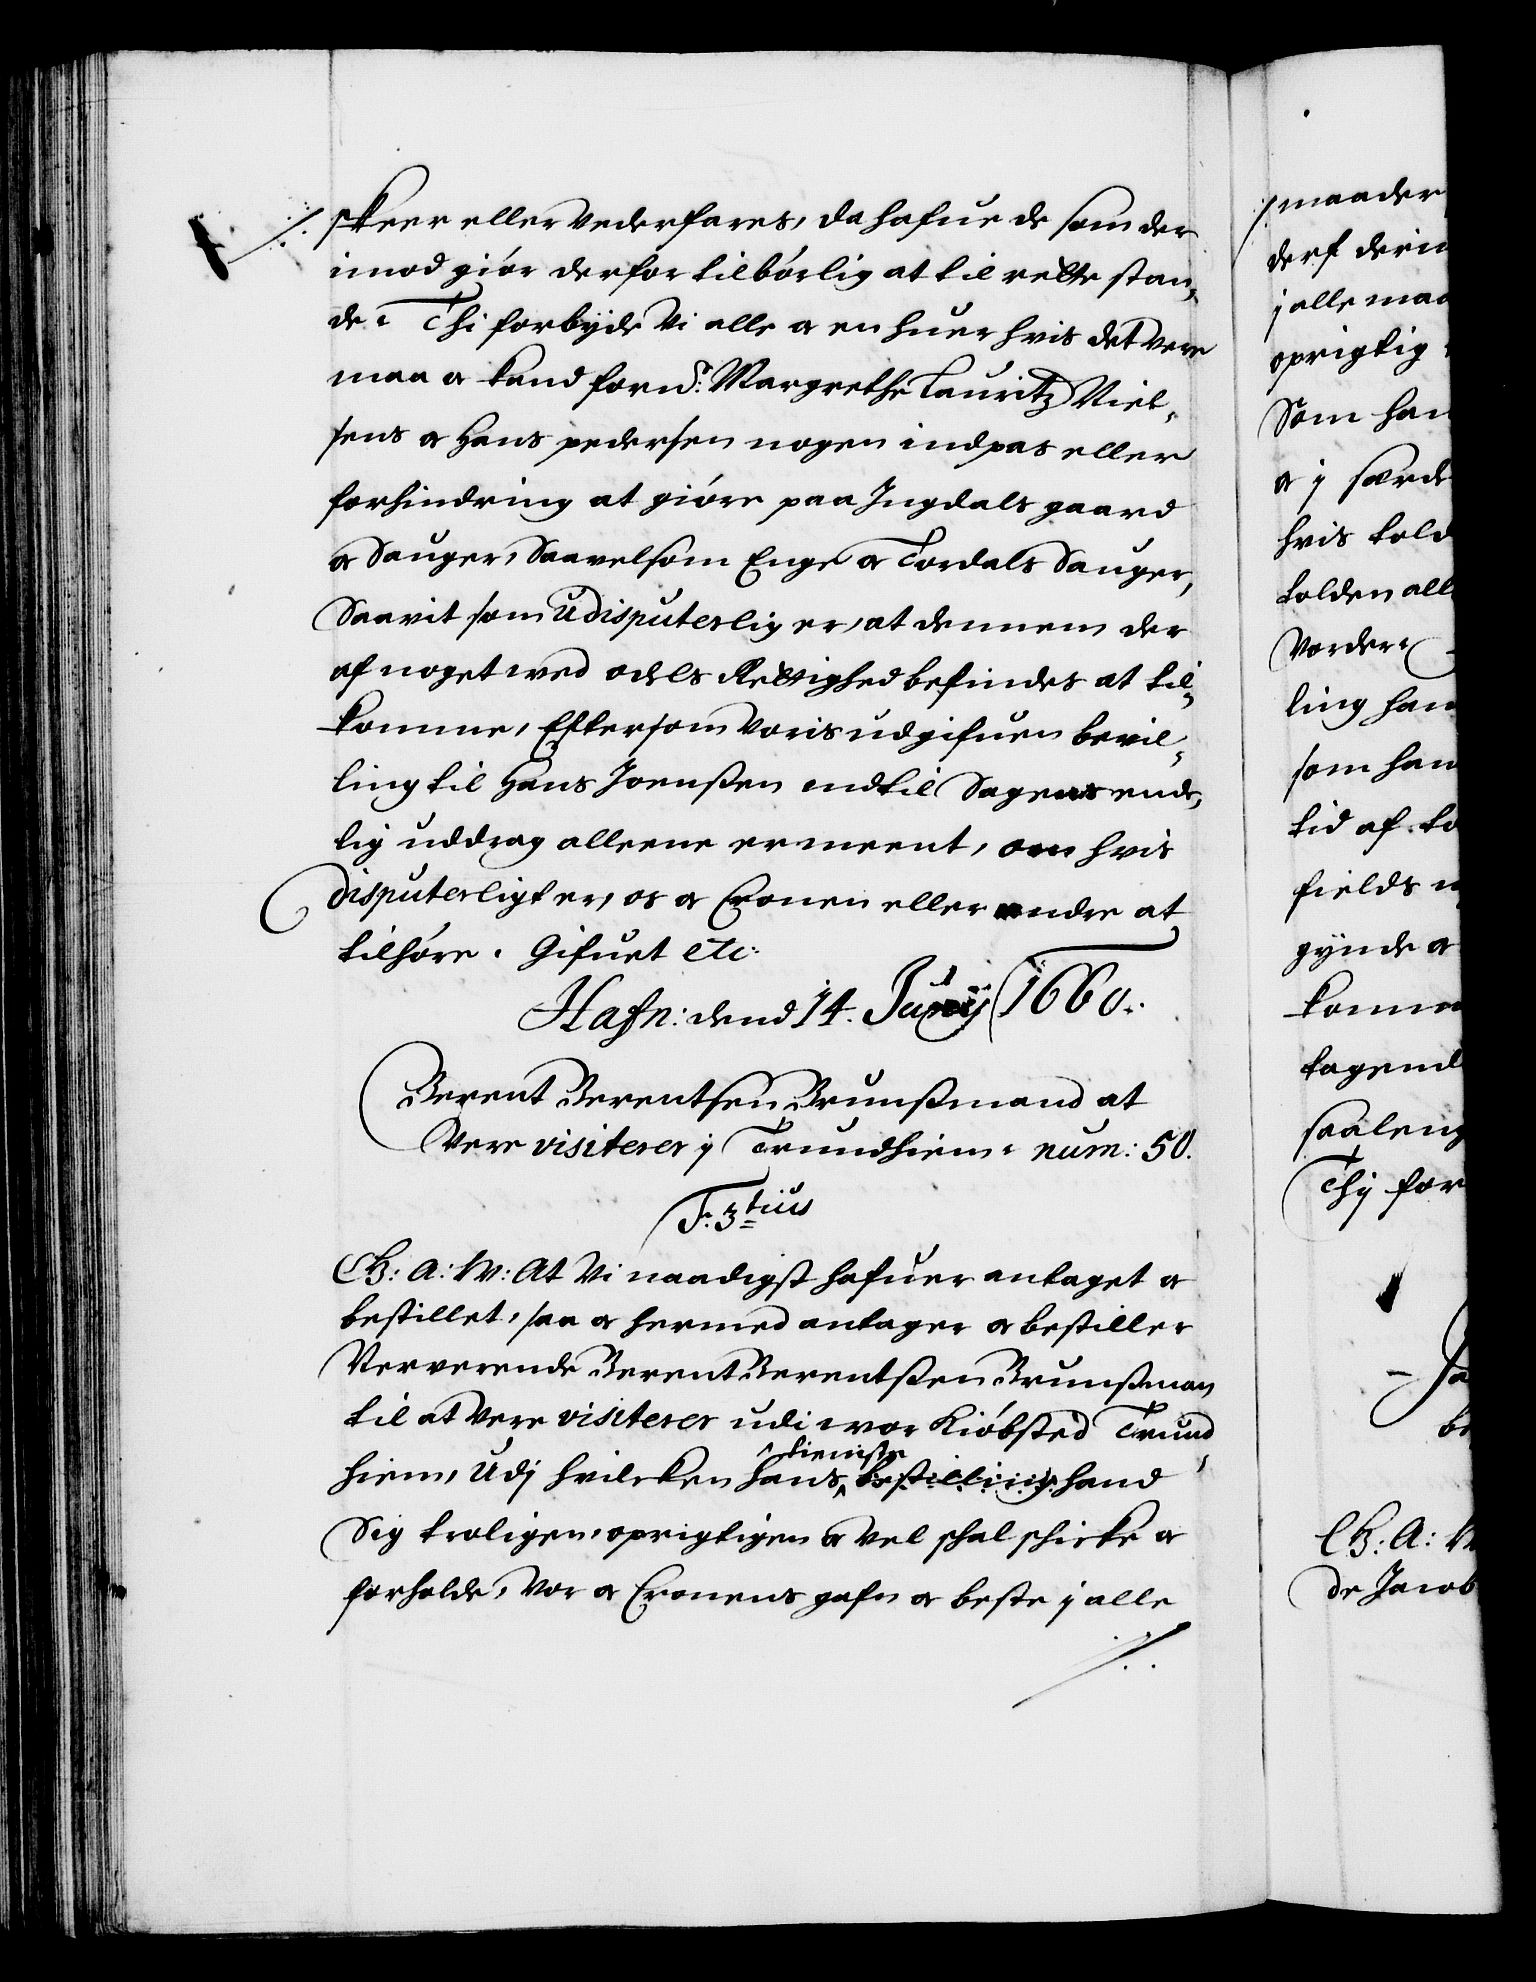 skeer eller vederfares, da hafue de som der
imod giör derfor tilbörlig at til rette stan„
de. Thi forbyde Vi alle oc en huer hvis det vere
maa oc kand fornd: Margrethe Lauritz Niel„
sens oc Hans pedersen nogen indpas eller
forhindring at giöre paa Ingdals gaard
oc Sauger, Saavelsom Enge oc Tordals Sauger,
Saavit som udisputerlig er, at dennem der
af noget med odels Rettighed befindes at til„
komme, Eftersom voris udgifuen bevil„
ling til Hans Joenssen indtil Sagens ende„
lig uddrag alleene er meent, om hvis
disputerligt er, os oc Cronen eller andre at
tilhöre. Gifuet etc:
Hafn: dend 14. Junij 1660.
Berent Berentsen Brunssmand at
Vere visiterer j Trundhiem. num: 50.
F. 3tius
G: A: W: At Vi naadigst hafuer antaget oc
bestillet, saa oc hermed antager oc bestiller
Nerverende Berent Berentssen Brunssman
til at vere visiterer udi vor Kiöbsted Trund„
tieniste
hiem, Udj hvilcken hans bestilling hand
Sig troligen, oprigtigen oc vel schal schicke oc
forholde, vor oc Cronens gafn oc beste j alle
maader
derf
j alle maa
oprigtig
Som han
oc j
hvis told
tolden all
Vorder.
ling han
som han
tid af to
fields
gynde oc
komm
tagend
saaleng
Thj for
Ja
be
G: A: W
de Jacob